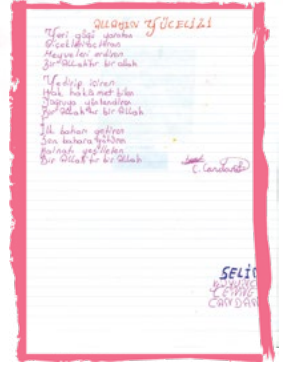 ALLAHIN YÜCELİĞİ
Yeri göğü yaratan
Çiçekleri açtıran
Meyveleri erdiren
Bir Allah'tır bir allah
Yedirip içiren
Hak
Yağmur yönlendiren
Bir Allah'tır bir Allah
İlk baharı getiren
Son bahara götüren
yeşilleten
Bir Allah'tır bir Allah
C. Candan
SELİ
CANDAN